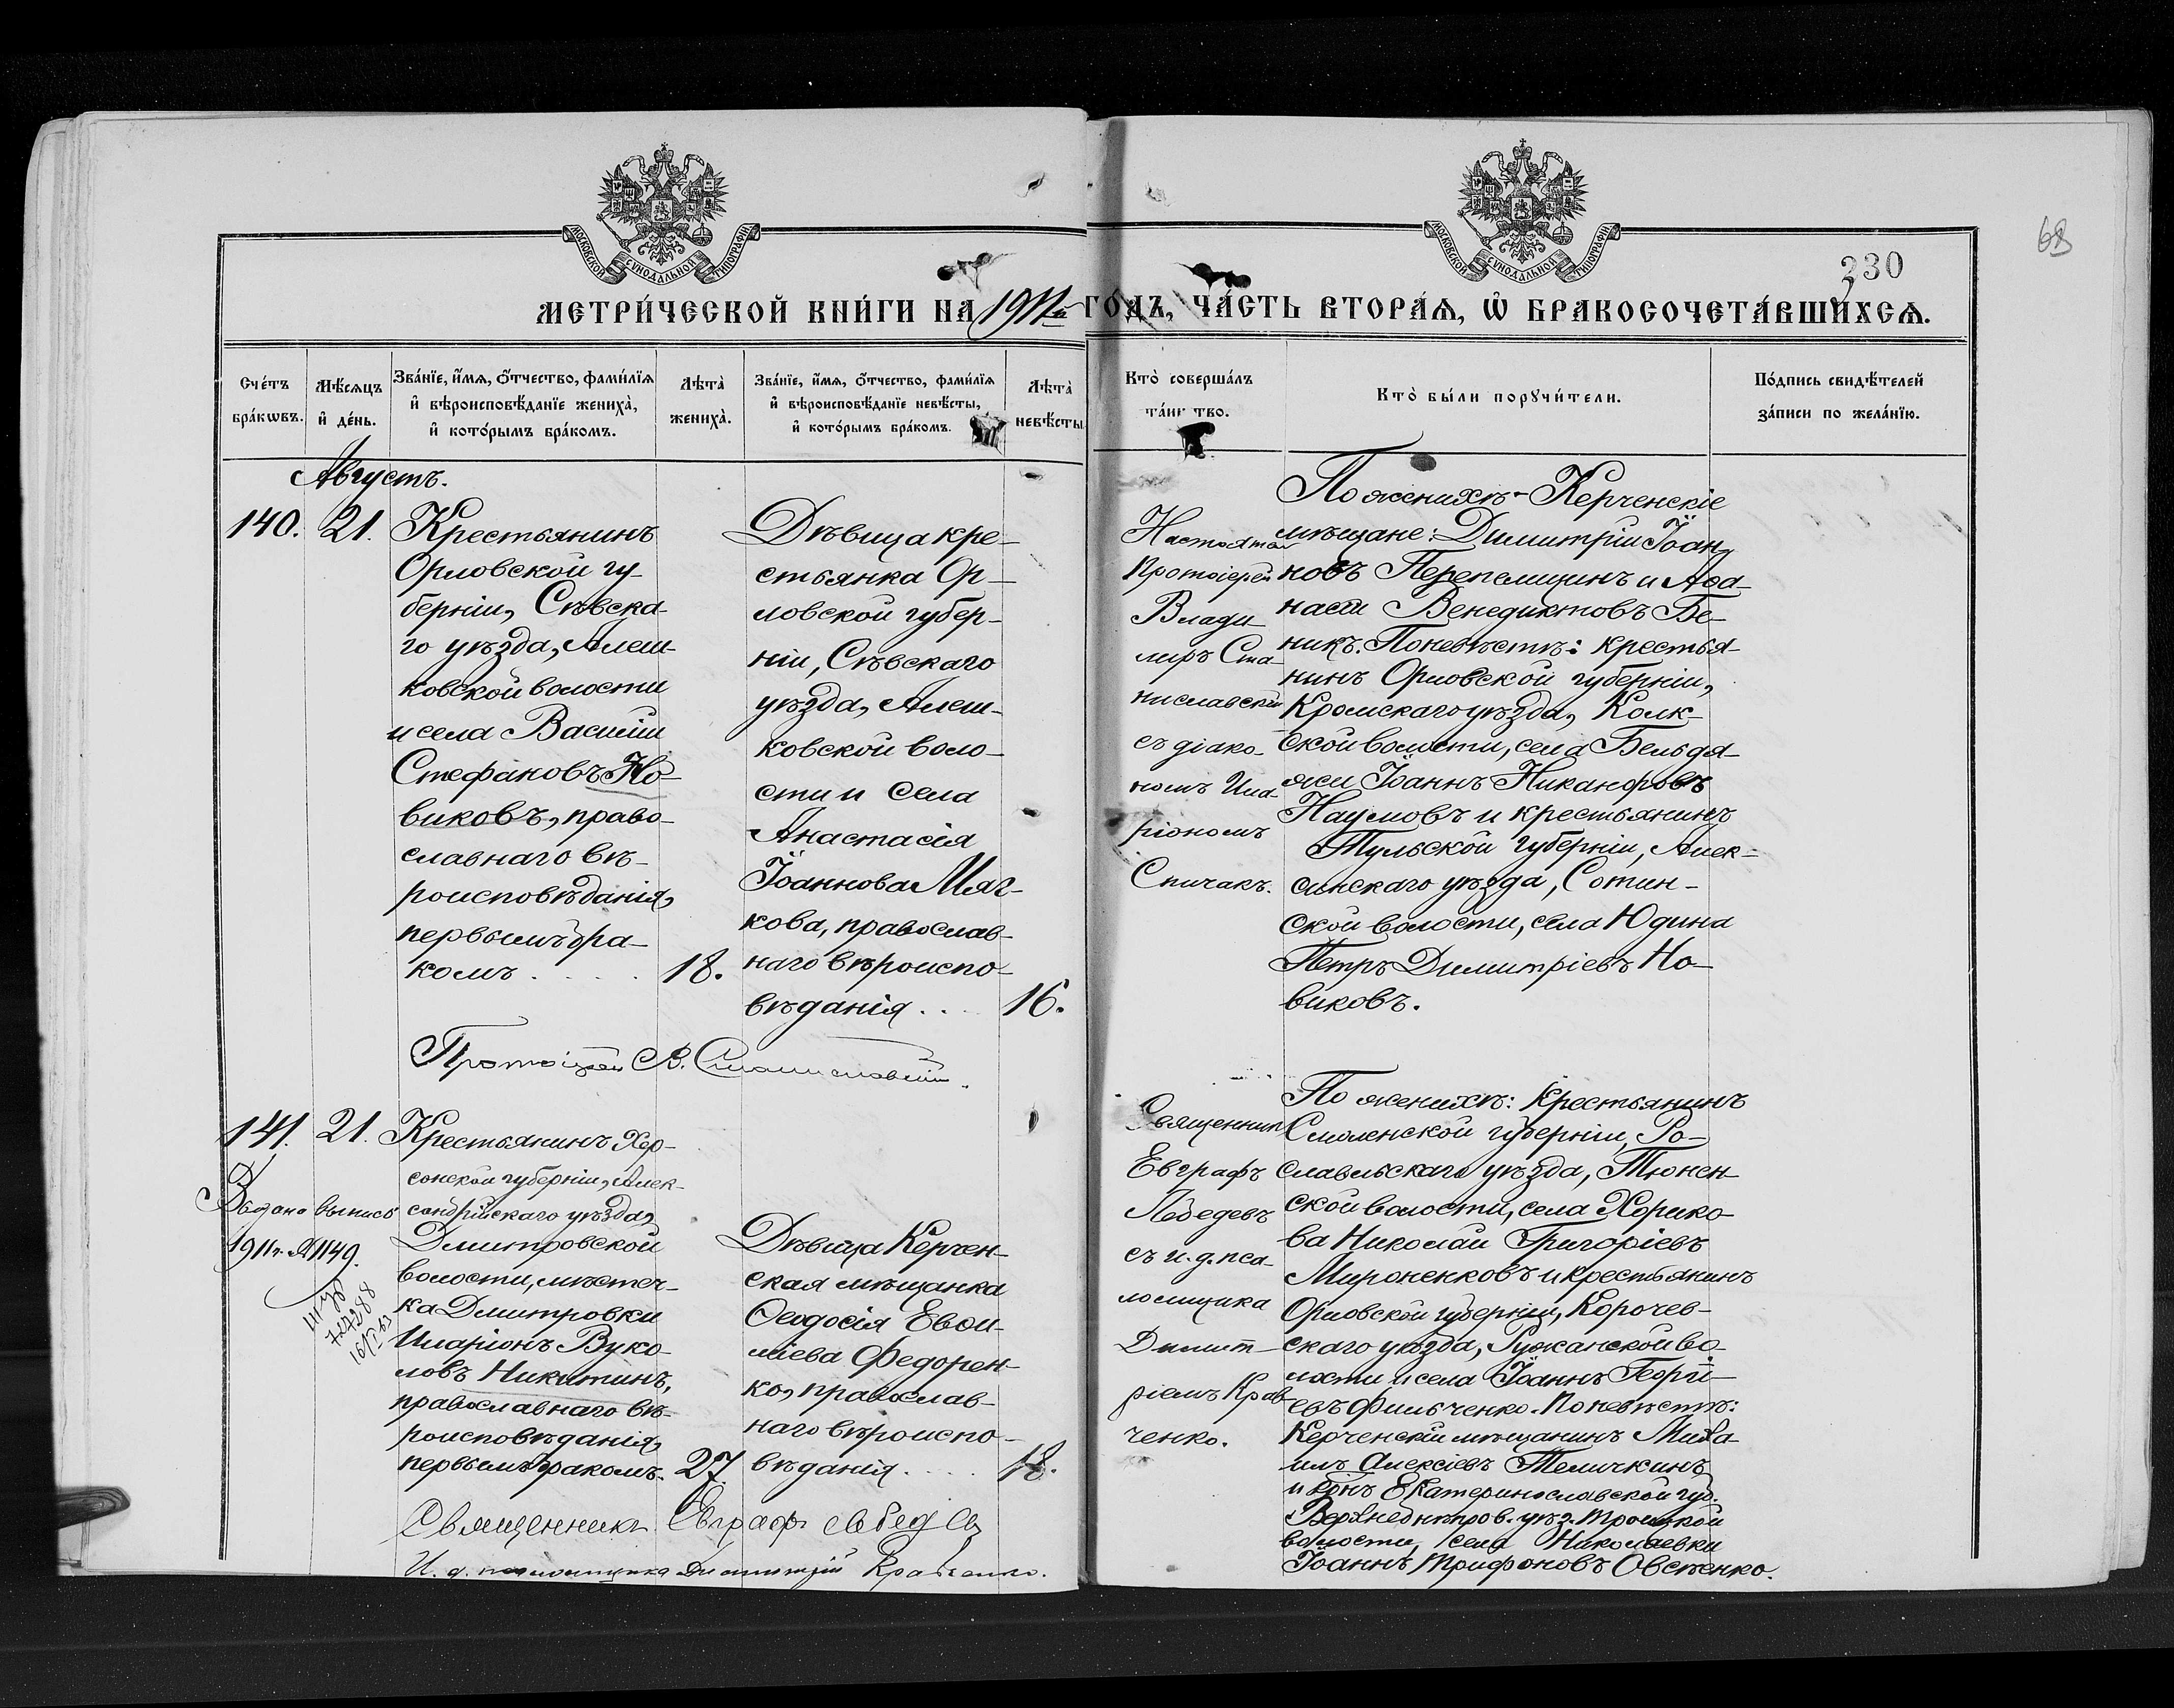 68
МОСКОВСКОЙ СѴНОДАЛЬНОЙ ТИПОГРАФІИ
МОСКОВСКОЙ СѴНОДАЛЬНОЙ ТИПОГРАФІИ
230
МЕТРИ́ЧЕСКОЙ КНИ́ГИ НА 1911й ГО́ДЪ, ЧА́СТЬ ВТОРА́Я, Ѡ҆ БРАКОСОЧЕТА́ВШИХСЯ.
Сче́тъ
бра́кωвъ.
Мѣ́сяцъ
и҆ де́нь.
Зва́нїе, и҆́мя, ѻ҆́тчество, фами́лїя
и҆ вѣроисповѣ́данїе жениха̀,
и҆ кото́рымъ бра́комъ.
Лѣта̀
жениха̀.
Зва́нїе, и҆́мя, ѻ҆́тчество, фами́лїя
и҆ вѣроисповѣ́данїе невѣ́сты,
и҆ кото́рымъ бра́комъ.
Лѣта̀
невѣ́сты
Кто̀ соверша́лъ
та́ин тво.
Кто̀ бы́ли порꙋчи́тели.
По́дпись свидѣ́телей
за́писи по жела́нїю.
Августъ.
140.
21.
Крестьянинъ
Орловской гу-
берніи, Сѣвска-
го уѣзда, Алеш-
ковской волости
и села Василій
Стефановъ Но-
виковъ, право-
славнаго вѣ-
роисповѣданія,
первымъ бра-
комъ . . . .
18.
Дѣвица кре-
стьянка Ор-
ловской губер-
ніи, Сѣвскаго
уѣзда, Алеш-
ковской воло-
сти и села
Анастасія
Іоаннова Мяг-
кова, православ-
наго вѣроиспо-
вѣданія . . .
16.
Настоятель
Протоіерей
Влади-
миръ Ста-
ниславскій
съ діако-
номъ Ила-
ріономъ
Спичакъ.
По женихѣ - Керченскіе
мѣщане: Димитрій Іоан-
новъ Перепелицинъ и Аѳа-
насій Венедиктовъ Бе-
никъ. По невѣстѣ: крестья-
нинъ Орловской губерніи,
Кромскаго уѣзда, Колк-
ской волости, села Бельдя-
жи Іоаннъ Никаноровъ
Наумовъ и крестьянинъ
Тульской губерніи, Алек-
синскаго уѣзда, Сотин-
ской волости, села Юдина
Петръ Димитріевъ Но-
виковъ.
Протоіерей В. Станиславскій.
141.
21.
Выдана выпись
1911 г. № 1149.
Крестьянинъ Хер-
сонской губерніи, Алек-
сандрійскаго уѣзда,
Дмитровской
волости, мѣстеч-
ка Дмитровки
Иларіонъ Вуко-
ловъ Никитинъ,
православнаго вѣ-
роисповѣданія,
первымъ бракомъ.
27.
Дѣвица Керчен-
ская мѣщанка
Ѳеодосія Евѳи-
міева Федорен-
ко, православ-
наго вѣроиспо-
вѣданія . . . .
18.
Священникъ
Евграфъ
Лебедевъ
съ и. д. пса-
ломщика
Димит-
ріемъ Крав-
ченко.
По женихѣ: крестьянинъ
Смоленской губерніи, Ро-
славльскаго уѣзда, Тюнен-
ской волости, села Хорико-
ва Николай Григоріевъ
Мироненковъ и крестьянинъ
Орловской губерніи, Корочев-
скаго уѣзда, Ружанской во-
лости и села Іоаннъ Георгі-
евъ Фильченко. По невѣстѣ:
Керченскій мѣщанинъ Миха-
илъ Алексіевъ Теличкинъ
и кр-нъ Екатеринославской губ.
Верхнеднѣпров. уѣз. Троицкой
волости, села Николаевки
Іоаннъ Трифоновъ Овсѣенко.
Священникъ Евграфъ Лебедевъ
И. д. псаломщика Димитрій Кравченко.